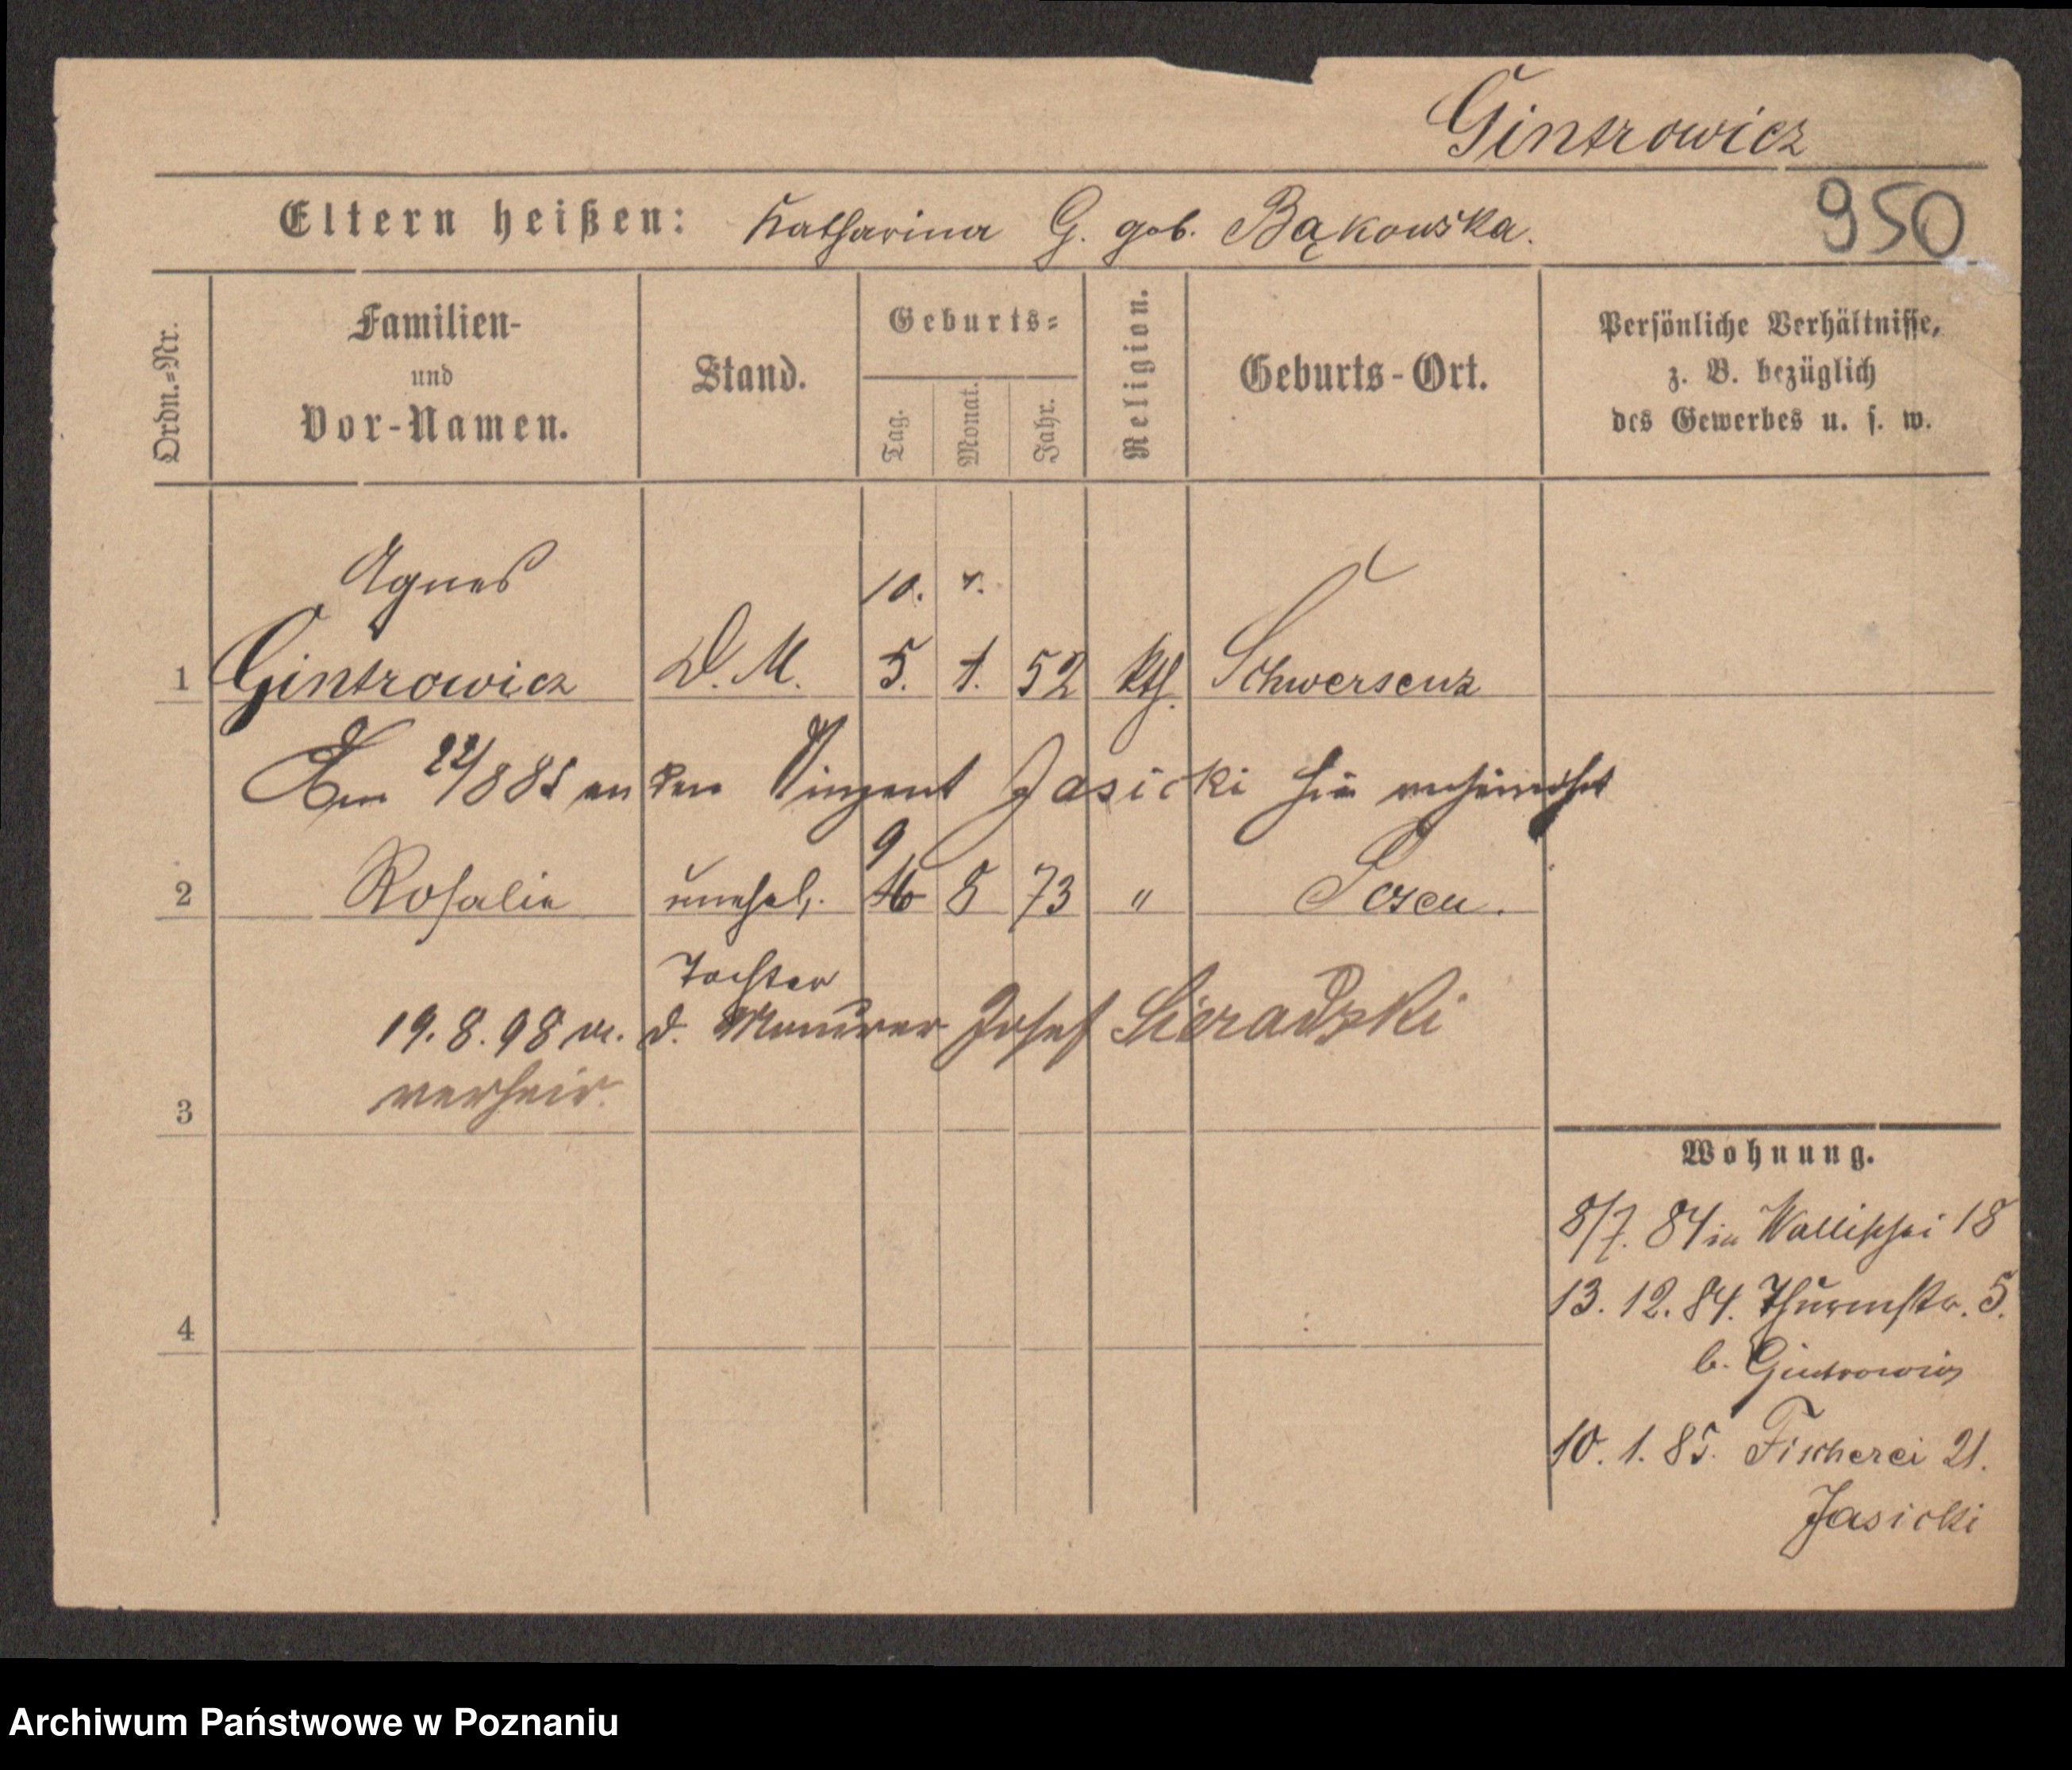 Gintrowicz
Eltern heißen: Katharina G. geb. Bąkowska.
950
Ordn.=Nr.
Familien-
und
Vor-Namen.
Stand.
Geburts=
Tag.
Monat.
Jahr.
Religion.
Geburts-Ort.
Persönliche Verhältnisse,
z. B. bezüglich
des Gewerbes u. s. w.
Agnes 10.
1 Gintrowicz D. M. 5. 1. 52 kth. Schwersenz
Am 22/8 85 an den Vinzent Jasicki hier verheirathet
9
2 Rosalie unehel. 16 8 73 " Posen.
Tochter
19.8.98 m. d. Maurer Josef Sieradzki
3 verheir.
4
Wohnung.
8/7. 84 in Wallischei 18
13. 12. 84. Thurmstr. 5.
b. Gintrowicz
10. 1. 85. Fischerei 21.
Jasicki
Archiwum Państwowe w Poznaniu